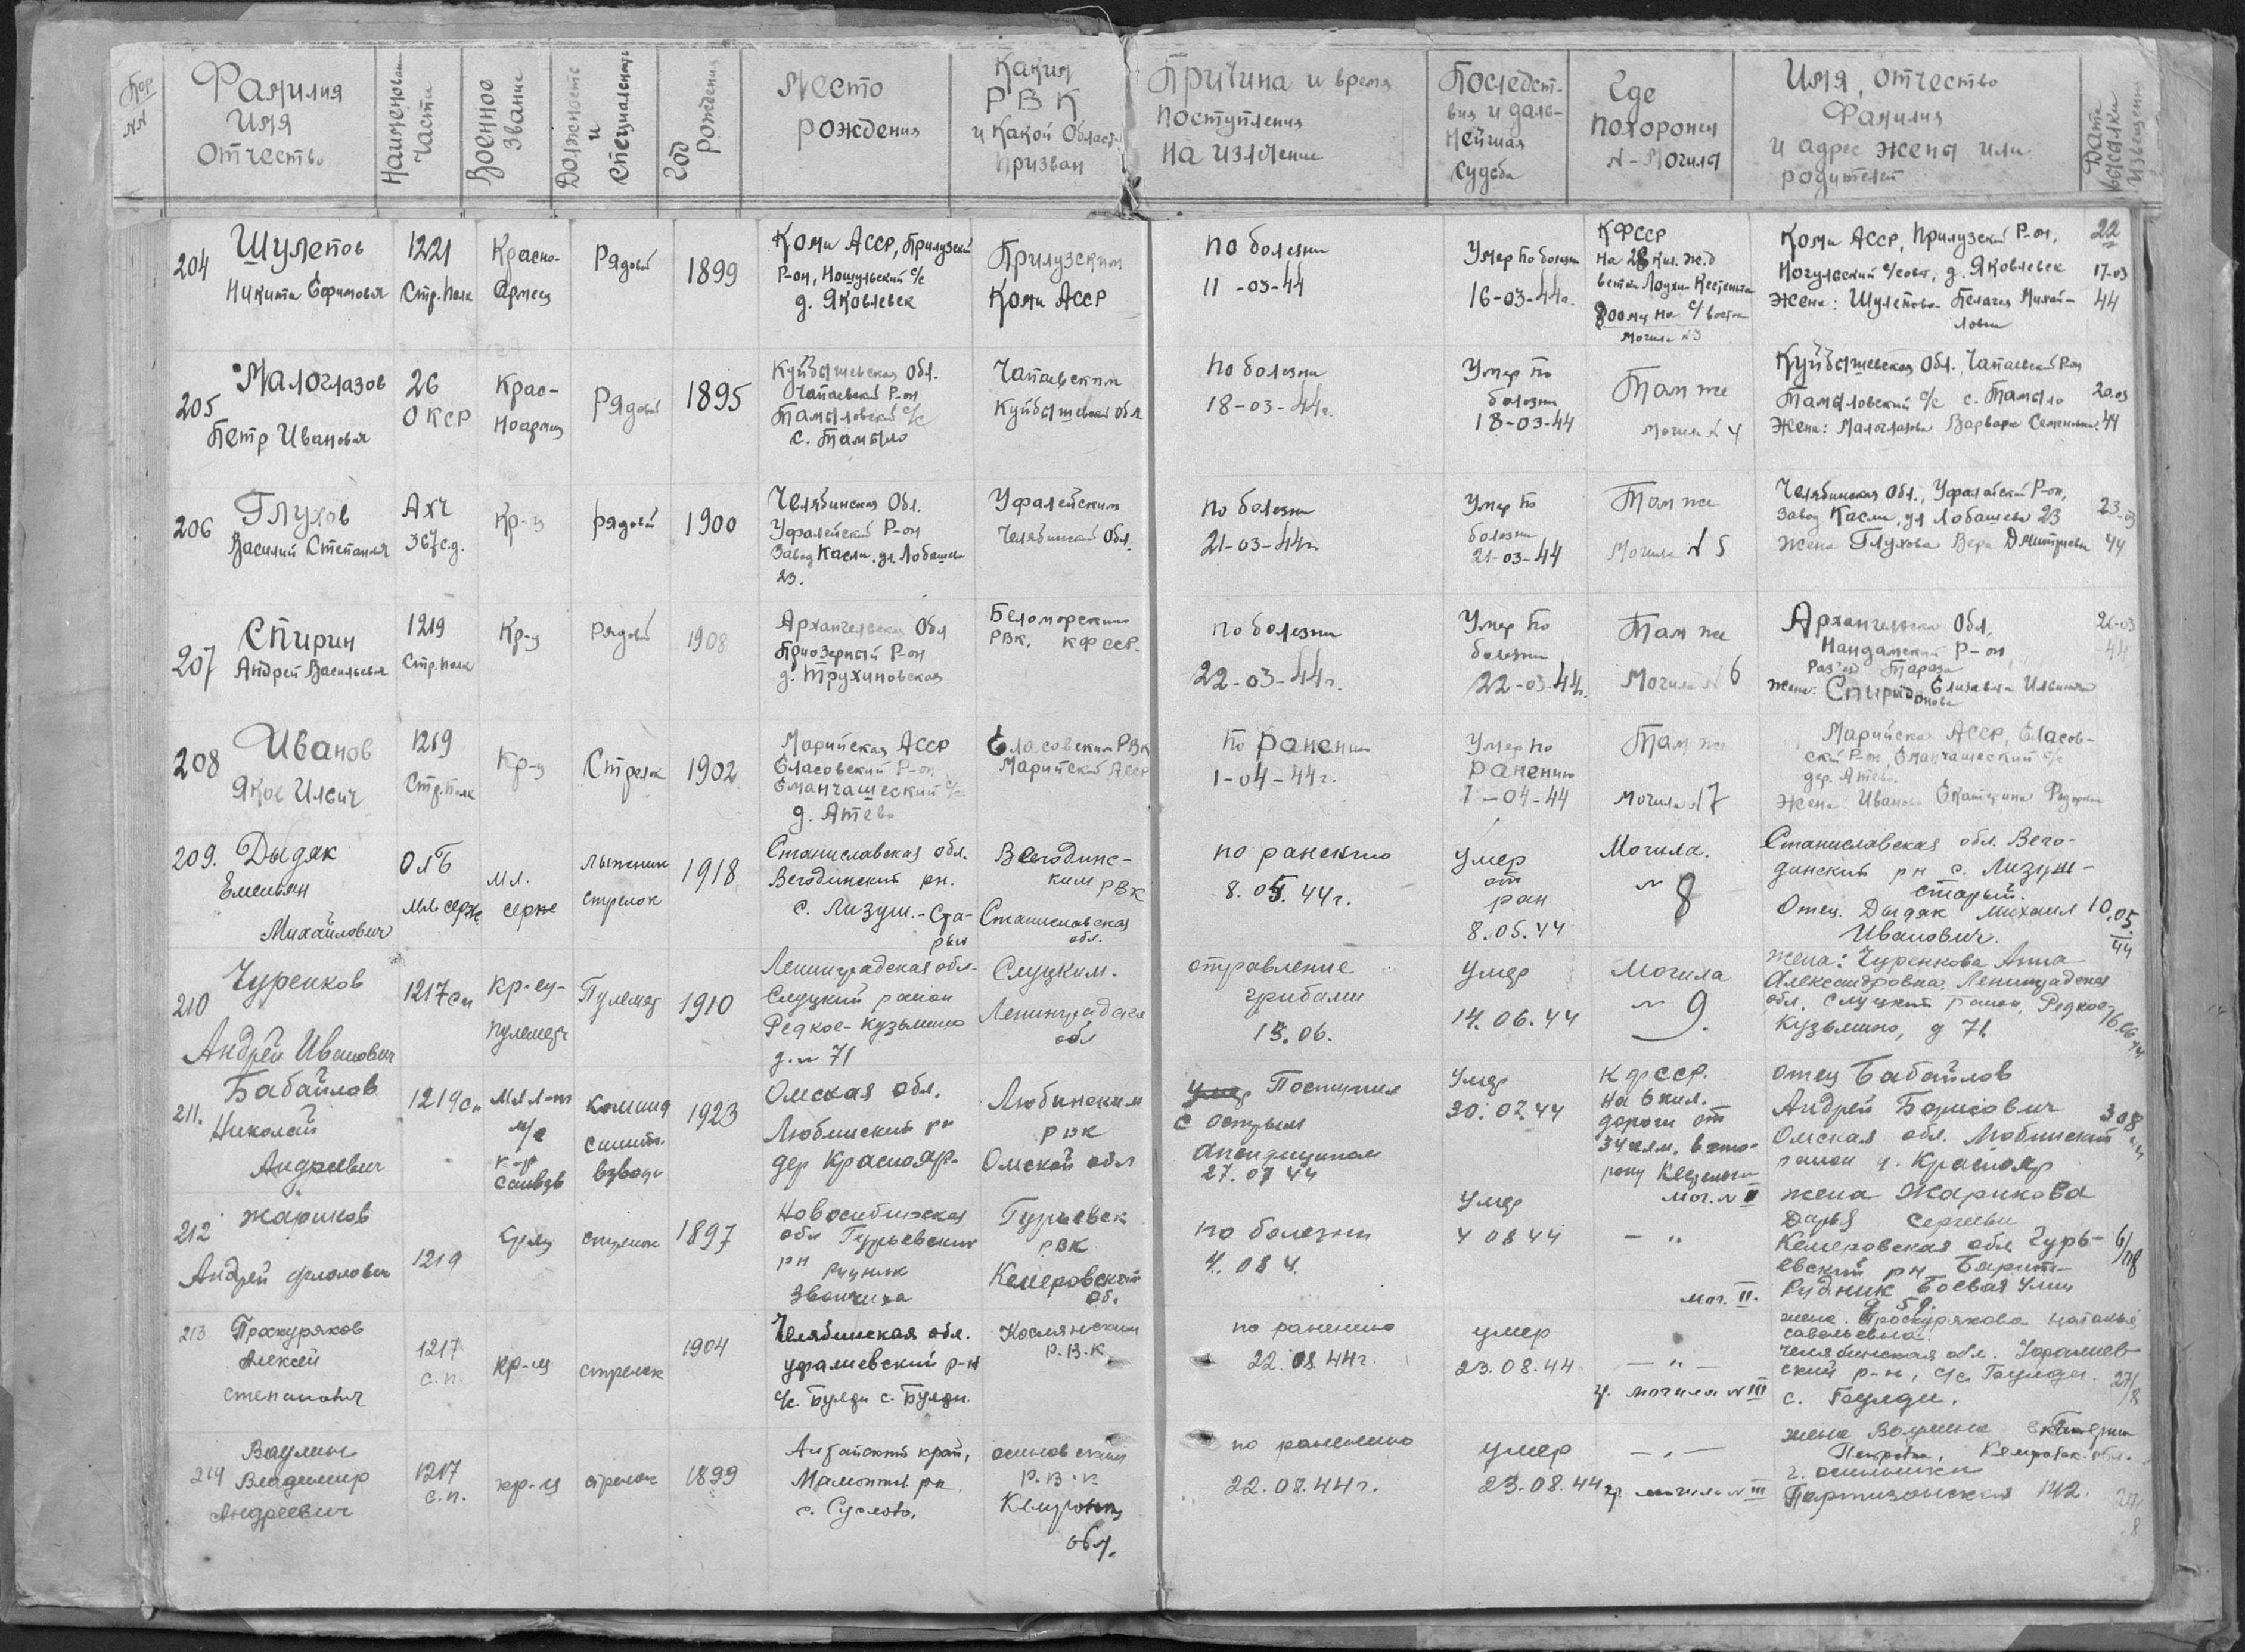 Пор
NN
Фамилия
Имя
Отчество
Наименован
Части
Военное
Звание
Должность
и
Специальность
Год
рождения
Место
рождения
Каким
РВК
и Какой Област
призван
Причина и время
поступления
на излечение
Последст-
вия и даль-
нейшая
судьба
Где
похоронен
N-Могила
Имя, отчество
Фамилия
и адрес жены или
родителей
Дата
высылки
извещения
204
Шулепов
Никита Ефимович
1221
Стр. полк
Красно-
Армеец
Рядовой
1899
Коми АССР, Прилузский
Р-он, Ношульский с/с
д. Яковлевск
Прилузским
Коми АССР
по болезни
11-03-44
Умер по болезни
16-03-44г.
КФССР
на 28 кил. ж.д
ветки Лоухи-Кестеньга
800 м на с/восток
Могила N3
Коми АССР, Прилузский Р-он,
Ногульский с/совет, д. Яковлевск
Жена: Шулепова Пелагея Михай-
ловна
22
17-03
44
205
Малоглазов
Петр Иванович
26
ОКСР
Крас-
ноармец
Рядовой
1895
Куйбышевская Обл.
Чапаевский Р-он
Тамыловский с/с
с. Тамыло
Чапаевским
Куйбышевской Обл
по болезни
18-03-44г.
Умер по
болезни
18-03-44
Там же
Могила N 4
Куйбышевская Обл., Чапаевский Р-он
Тамыловский с/с с. Тамыло
Жена: Малоглазова Варвара Семеновна
20.03
44
206
Глухов
Василий Степанович
АХЧ
367 с.д.
Кр-ц
рядовой
1900
Челябинская Обл.
Уфалейский Р-он
Завод Касли, ул. Лобашева
23.
Уфалейским
Челябинской Обл.
по болезни
21-03-44г.
Умер по
болезни
21-03-44
Там же
Могила N 5
Челябинская Обл., Уфалейский Р-он,
Завод Касли, ул Лобашева 23
Жена Глухова Вера Дмитриевна
23-03
44
207
Спирин
Андрей Васильевич
1219
Стр. полк
Кр-ц
Рядовой
1908
Архангельская Обл
Приозерный Р-он
д. Трухиновская
Беломорским
РВК, КФССР.
по болезни
22-03-44г.
Умер по
болезни
22-03-44г.
Там же
Могила N 6
Архангельска Обл,
Няндамский Р-он,
Раз'езд Тараза
Жена: Спиридонова Елизавета Ильинична
26-03
44
208
Иванов
Яков Илвич
1219
Стр. полк
Кр-ц
Стрелок
1902
Марийская АССР
Еласовский Р-он
Еманчашеский с/с
д. Атево
Еласовским РВК
Марийской АССР
По ранении
1-04-44г.
Умер по
ранению
1-04-44
Там же
Могила N7
Марийская АССР, Еласов-
ский Р-он, Еманчашеский с/с
дер. Атево.
Жена Иванова Екатерина Федоровна
209.
Дыдяк
Емельян
Михайлович
ОЛБ
мл. серж.
мл.
серж
лыжник
стрелок
1918
Станиславская обл.
Вегодинский рн.
с. Лизуш.-Ста-
рый
Вегодинс-
ким РВК
Станиславская
обл.
по ранению
8.05.44г.
умер
от
ран
8.05.44
Могила.
N 8
Станиславская обл. Вего-
динский рн с. Лизуш-
старый.
Отец. Дыдяк Михаил
Иванович.
10.05.
44
210
Чуренков
Андрей Иванович
1217 сп
кр-ец-
пулеметч
Пулемет
1910
Ленинградская обл.
Слуцкий район
Редкое-Кузьмино
д. N 71
Слуцким.
Ленинградская
обл
отравление
грибами
13.06.
умер
14.06.44
Могила
N 9.
жена: Чуренкова Анна
Александровна Ленинградская
обл, слуцкий район, Редкое
Кузьмино, д 71
16.06
44
211.
Бабайлов
Николай
Андреевич
1219 сп
мл л-т
м/с
к-р
санвзв
команд
санит.
взвода
1923
Омская обл.
Любинский рн
дер Краснояр-
Любинским
РВК
Омской обл
Поступил
с острым
апендицитом
27.07 44
Умер
30.07.44
К ФССР.
на 6 кил.
дороги от
34 клм. в сто-
рону Кестеньги
мог. N II
отец Бабайлов
Андрей Борисович
Омская обл. Любинский
район д. Краснояр
3 08
44
212
Жариков
Андрей Филолович
1219
Кр-ец
стрелок
1897
Новосибирская
обл Гурьевский
рн Рудник
Звончиха
Гурьевск
РВК
Кемеровский
об.
по болезни
4.08 4.
Умер
4 08 44
— "
мог. II.
жена Жарикова
Дарья Сергеевн
Кемеровская обл, Гурь-
евский рн Барит-
Рудник Боевая улиц
д 59.
6/
08
213
Проскуряков
Алексей
степанович
1217
с.п.
кр-ц
стрелок
1904
Челябинская обл.
уфалиевский р-н
с/с. Булзи с. Булзи.
Каслинским
Р.В.К
по ранению
22.08 44г.
умер
23.08.44
— " —
г. могила N III
жена. Проскурякова наталья
савельевна.
челябинская обл. Уфалиев-
ский р-н, с/с Булзи.
с. Булзи.
27/
8
214
Ваулин
Владимир
Андреевич
1217
с.п.
кр-ц
стрелок
1899
Алтайский край,
Мамонтов. рн.
с. Суслово.
осиновским
Р.В.К
Кемеровск
обл.
по ранению
22.08.44г.
умер
23.08.44
— " —
г. могила N III
жена Ваулина Екатерин
Петровна, Кемеровск. обл.
г. осинники
Партизанская 142.
27/
8